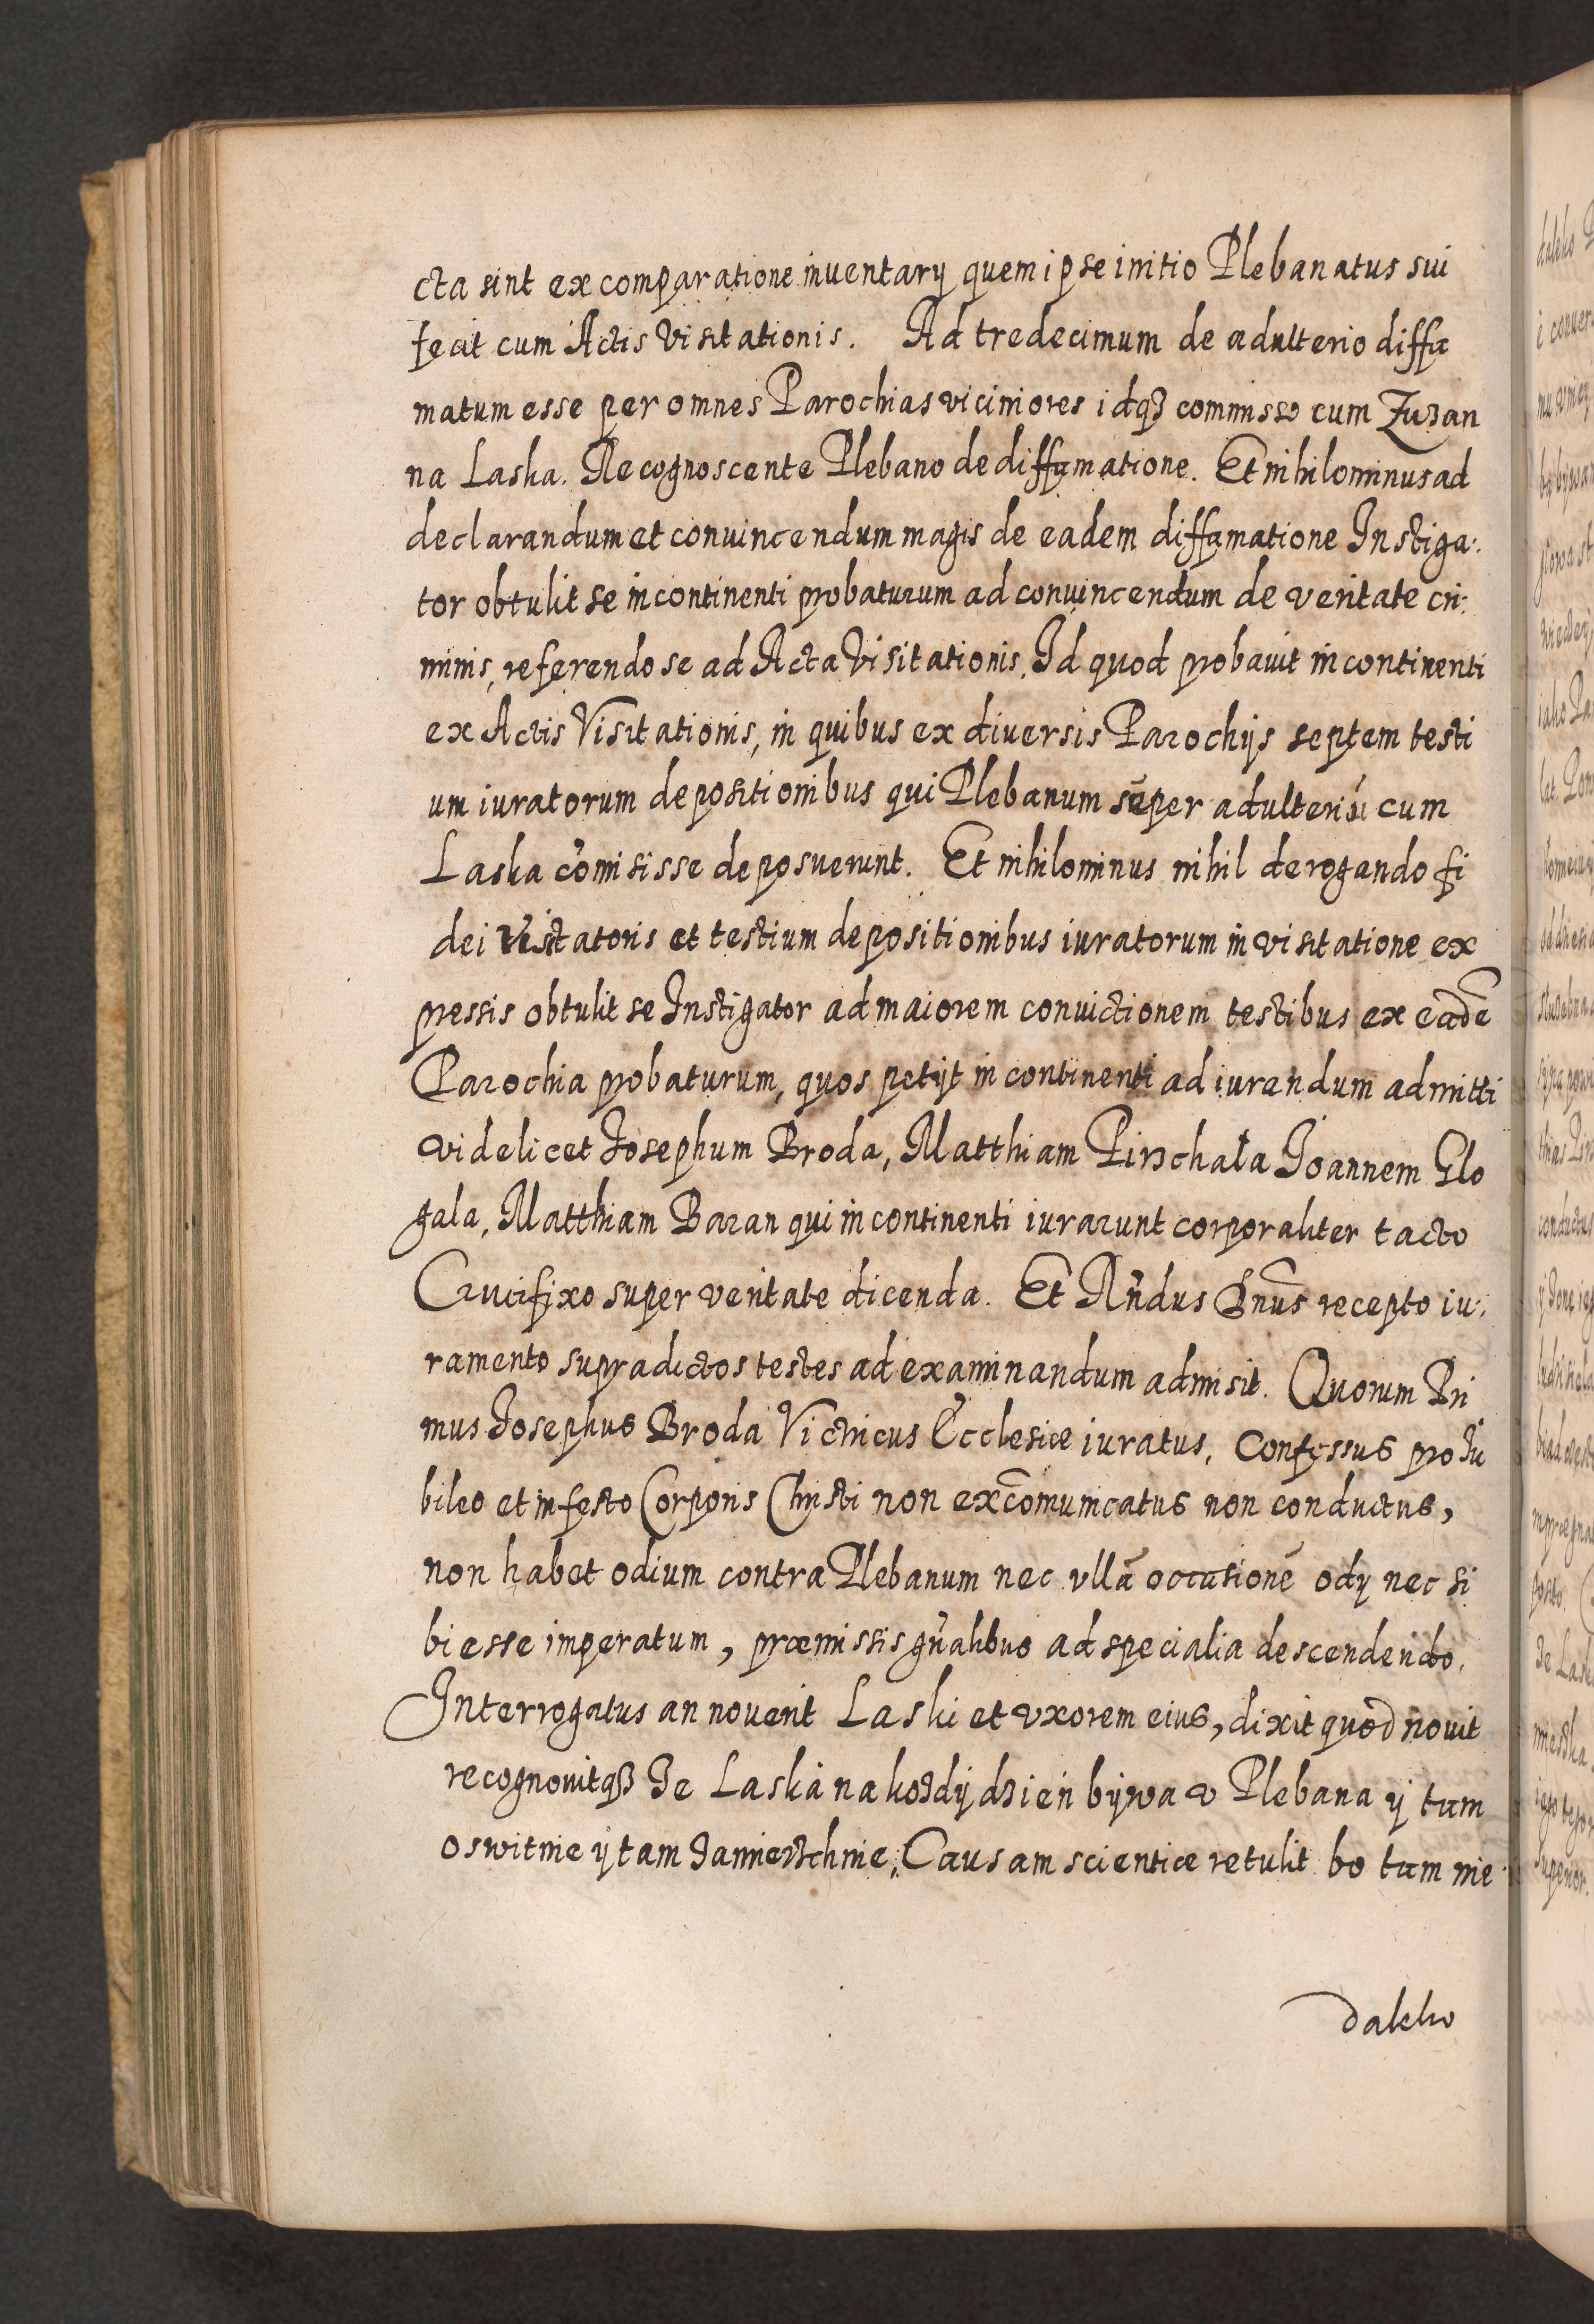 cta sint ex comparatione inuentarÿ quem ipse initio Plebanatus sui
fecit cum Actis Visitationis. Ad tredecimum de adulterio diffa
matum esse per omnes Parochias viciniores idqꝫ commisso cum Zuzan
na Laska. Recognoscente Plebano de diffamatione. Et nihilominus ad
declarandum et conuincendum magis de eadem diffamatione Instiga:
tor obtulit se in continenti probaturum ad conuincendum de veritate cri:
minis, referendo se ad Acta Visitationis. Id quod probauit in continenti
ex Actis Visitationis, in quibus ex diuersis Parochijs septem testi
um iuratorum depositionibus qui Plebanum super adulteriū cum
Laska cōmisisse deposuerunt. Et nihilominus nihil derogando fi
dei Visitatoris et testium depositionibus iuratorum in visitatione ex
pressis obtulit se Instigator ad maiorem conuictionem testibus ex eadē
Parochia probaturum, quos petijt in continenti ad iurandum admitti
videlicet Josephum Broda, Matthiam Pirzchała Joannem Glo
gala, Matthiam Baran qui in continenti iurarunt corporaliter tacto
Crucifixo super veritate dicenda. Et Rn̄dus Dn̄us recepto iu:
ramento supradictos testes ad examinandum admisit. Quorum Pri
mus Josephus Broda Victricus Ecclesiæ iuratus, Confessus pro Ju
bileo et in festo Corporis Christi non excōmunicatus non conductus,
non habet odium contra Plebanum nec vllā occasionē odÿ nec si
bi esse imperatum, præmissis gn̄alibus ad specialia descendendo.
Interrogatus an nouerit Laski et vxorem eius, dixit quod nouit
recognouitqꝫ Ze Laska na kozdÿ dzień bÿwa v Plebana ÿ tam
oswitnie ÿ tam zamierzchnie, Causam scientiæ retulit bo tam nie
daleko